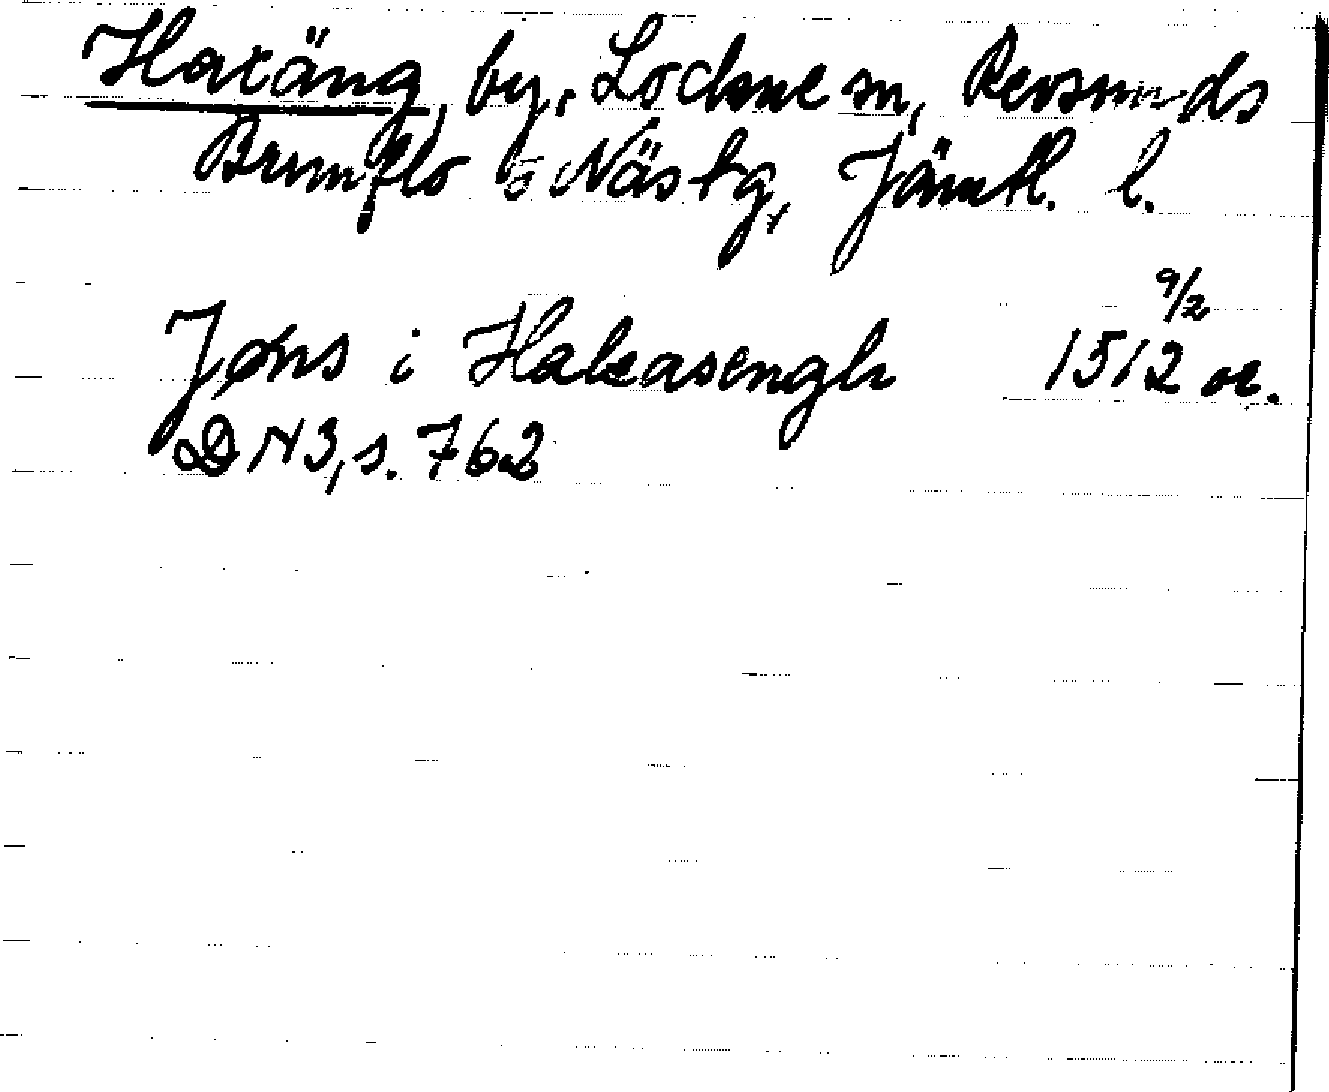 Haxäng, by, Lockne sn, Revsunds
Brunflo o Näs tg, Jämtl. l.
Jøns i Hakasengh 1512 9/2 or.
DN 3, s. 762